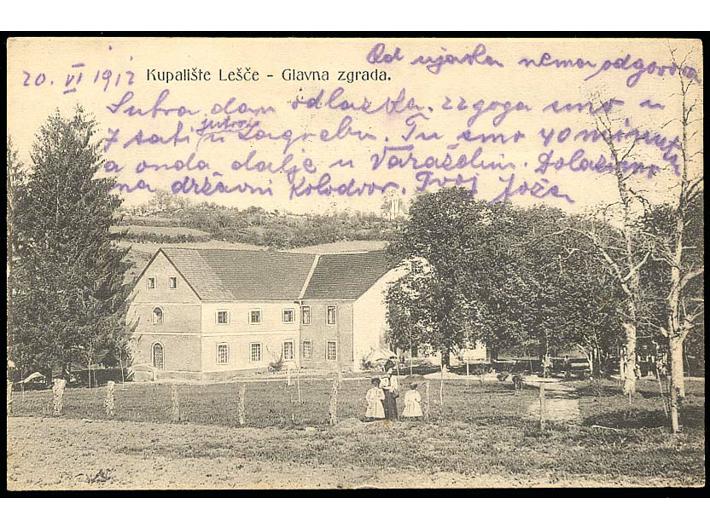 Od ujaka nema odgovora
20. VI 1912
Kupalište Lešče - Glavna zgrada.
Sutra dan odlazka. 22goga smo u
7 sati jutro u Zagrebu. Tu smo 40 minuta
a onda dalje u Varaždin. Dolazimo
na državni kolodvor. Tvoj Joža